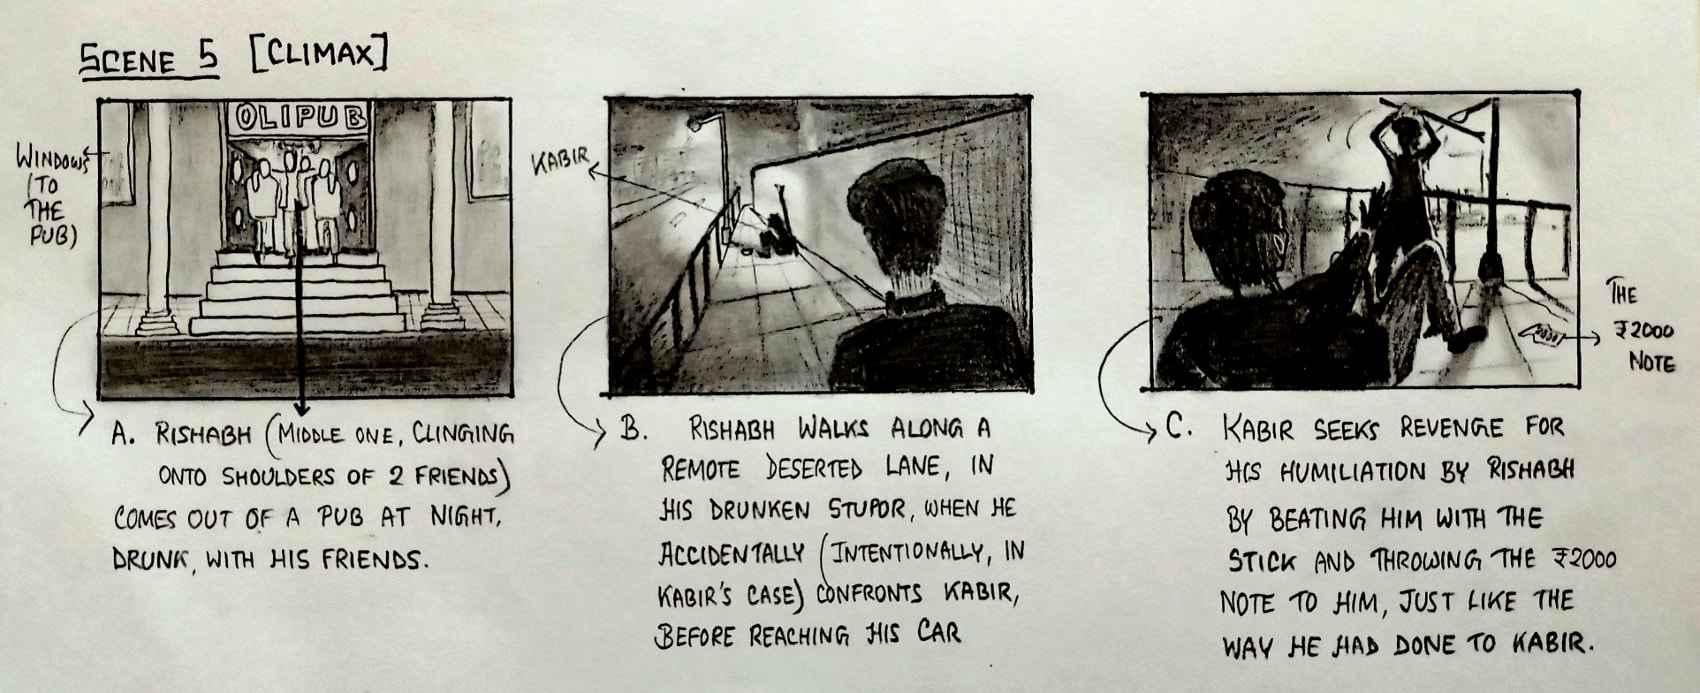 SCENE 5 [CLIMAX]
OLIPUB
WINDOWS
(TO
THE
PUB)
A. RISHABH (MIDDLE ONE, CLINGING
ONTO SHOULDERS OF 2 FRIENDS)
COMES OUT OF A PUB AT NIGHT,
DRUNK, WITH HIS FRIENDS.
KABIR
B. RISHABH WALKS ALONG A
REMOTE DESERTED LANE, IN
HIS DRUNKEN STUPOR, WHEN HE
ACCIDENTALLY (INTENTIONALLY, IN
KABIR'S CASE) CONFRONTS KABIR,
BEFORE REACHING HIS CAR
THE
₹2000
NOTE
C. KABIR SEEKS REVENGE FOR
HIS HUMILIATION BY RISHABH
BY BEATING HIM WITH THE
STICK AND THROWING THE ₹2000
NOTE TO HIM, JUST LIKE THE
WAY HE HAD DONE TO KABIR.